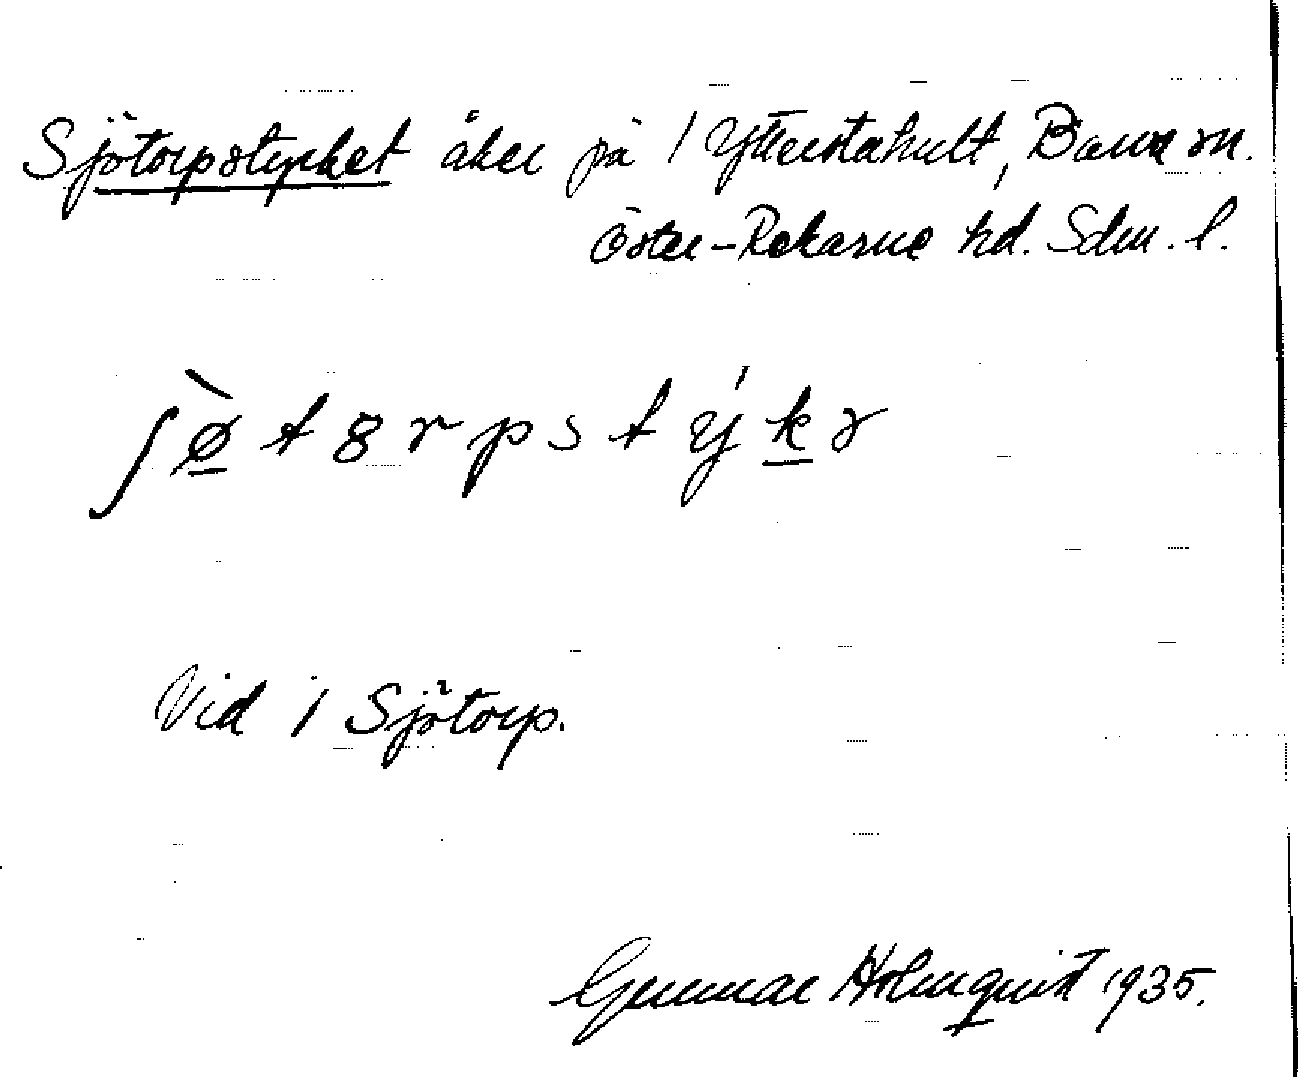 Sjötorpstycket åker på / Ytterstahult, Barva sn.
Öster-Rekarne hd. Sdm. l.
ʃø̱̀tɞrpstýḵɤ
Vid / Sjötorp.
Gunnar Holmquist 1935.